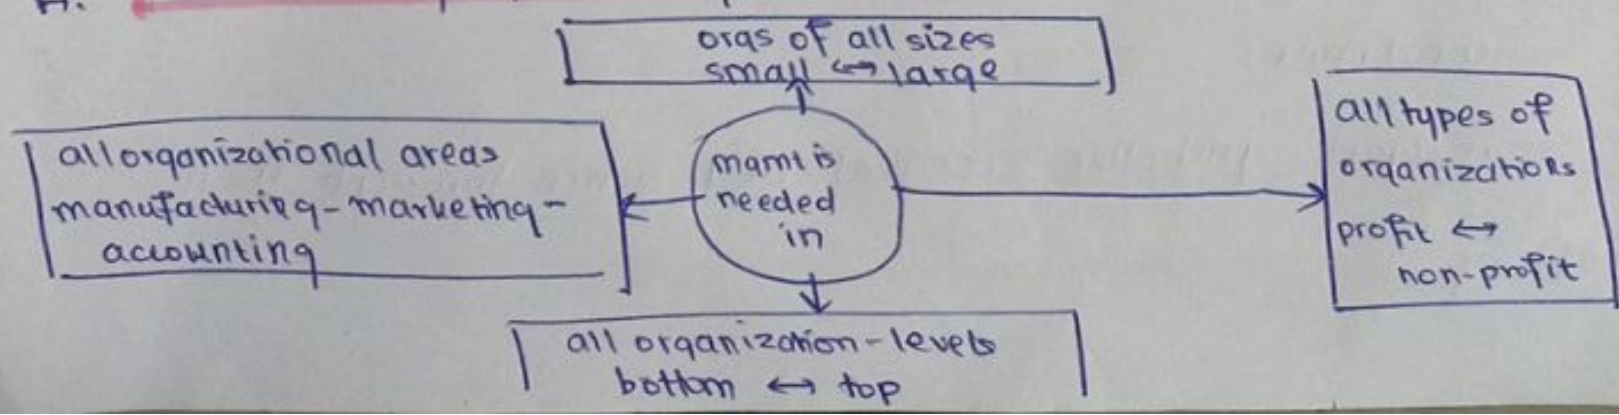 A.
orgs of all sizes
small ↔ large
all organizational areas
manufacturing - marketing -
accounting
mgmt is
needed
in
all types of
organizations
profit ↔
non-profit
all organization - levels
bottom ↔ top